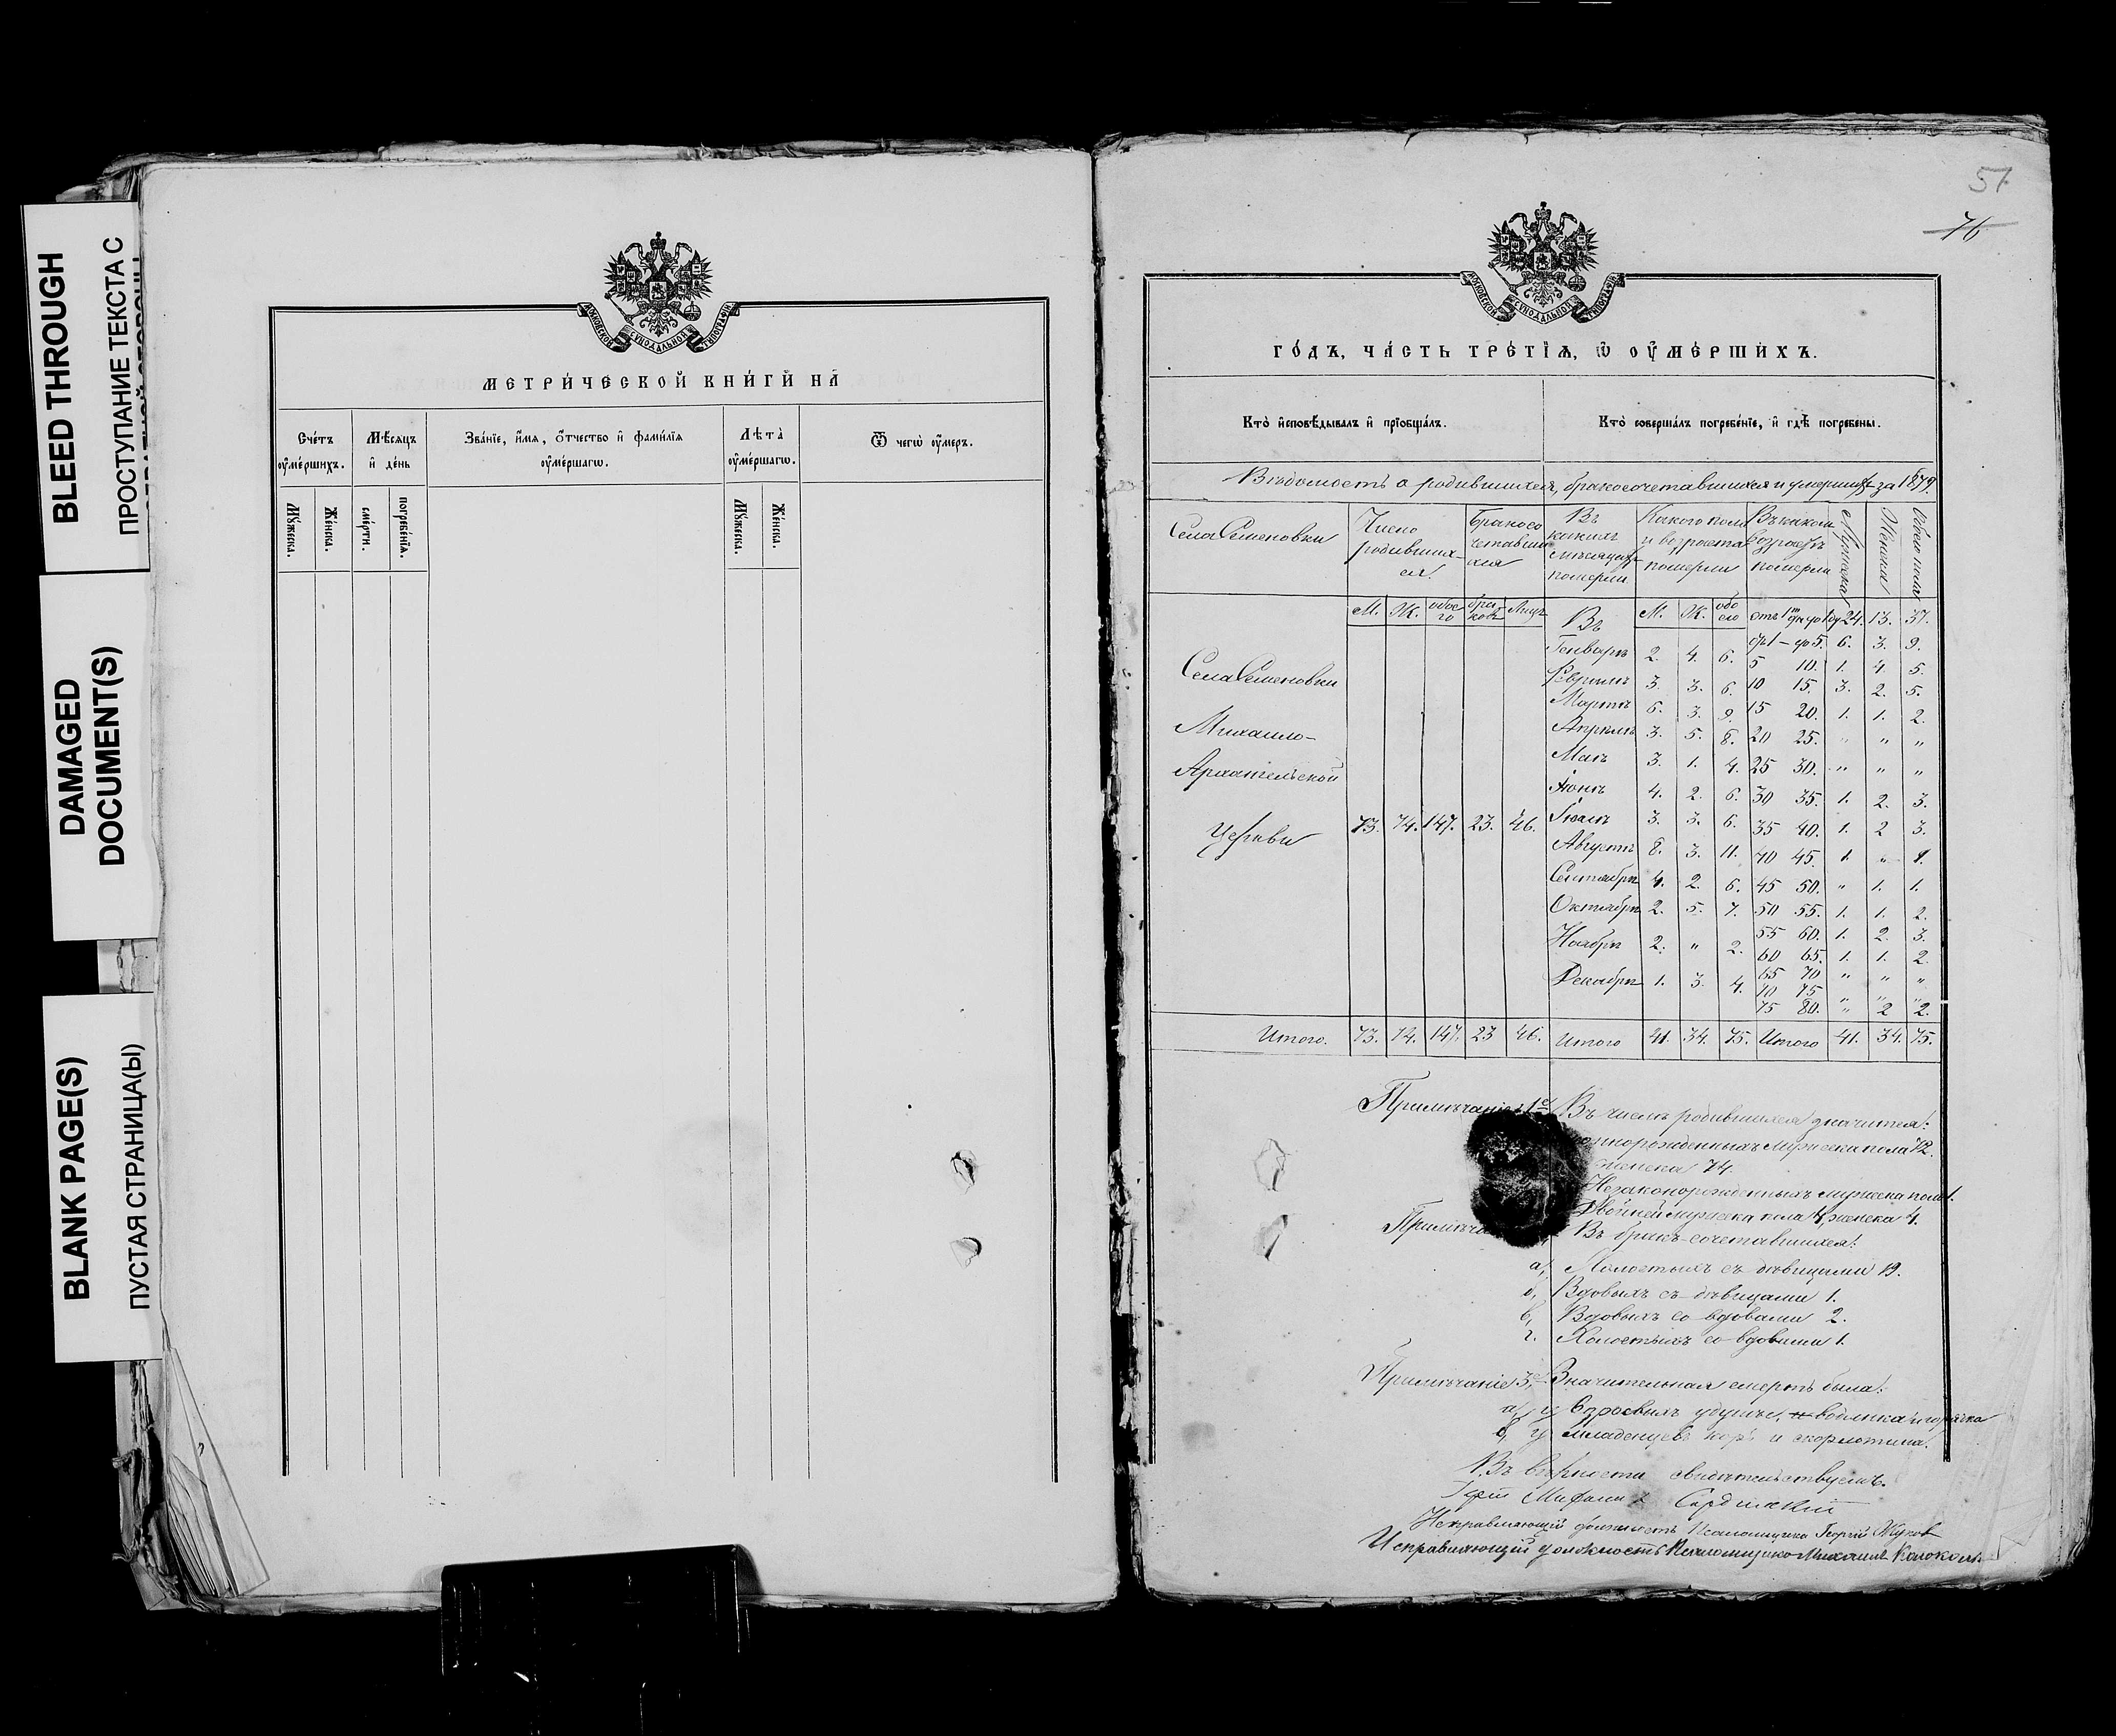 BLEED THROUGH
ПРОСТУПАНИЕ ТЕКСТА С
DAMAGED
DOCUMENT(S)
BLANK PAGE(S)
ПУСТАЯ СТРАНИЦА(Ы)
МОСКОВСКОЙ СѴНОДАЛЬНОЙ ТИПОГРАФІИ
МЕТРИ́ЧЕСКОЙ КНИ́ГИ НА
Сче́тъ ᲂу҆ме́ршихъ.
Мѣ́сѧцъ и҆ де́нь
Зва́нїе, и҆́мѧ, ѻ҆́тчество и҆ фами́лїѧ ᲂу҆ме́ршагѡ.
Лѣта̀ ᲂу҆ме́ршагѡ.
Ѿ чегѡ̀ ᲂу҆́меръ.
Мꙋ́жеска.
Же́нска.
сме́рти.
погребе́нїѧ.
Мꙋ́жеска.
Же́нска.
51
76
МОСКОВСКОЙ СѴНОДАЛЬНОЙ ТИПОГРАФІИ
ГО́ДЪ, ЧА́СТЬ ТРЕ́ТЇѦ, Ѡ҆ ОУ҆МЕ́РШИХЪ.
Кто̀ и҆сповѣ́дывалъ и҆ прїобща́лъ.
Кто̀ соверша́лъ погребе́нїе, и҆ гдѣ̀ погребены.
Вѣдомость о родившихся, бракосочетавшихся и умершихъ за 1879.
Села Семеновки
Число родивших-ся.
Бракосочетавшихся
Въ какихъ мѣсяцахъ померли
Какого пола и возраста померли
Въ какомъ возрастѣ померли
Мужска
Женска
Обоего пола
М. Ж. обоего браковъ Лицъ Въ М. Ж. обоего 24. 13. 37.
Генварѣ 2. 4. 6. 1 – до 5. 6. 3. 9.
5 10. 1. 4. 5.
Села Семеновки
Февралѣ 3. 3. 6. 10 15. 3. 2. 5.
Мартѣ 6. 3. 9. 15 20. 1. 1. 2.
Михаило-
Апрѣлѣ 3. 5. 8. 20 25. " " "
Архангельской
Маѣ 3. 1. 4. 25 30. " " "
Іюнѣ 4. 2. 6. 30 35. 1. 2. 3.
Церкви 73. 74. 147. 23. 46. Іюлѣ 3. 3. 6. 35 40. 1. 2 3.
Августѣ 8. 3. 11. 40 45. 1. " 1.
Сентябрѣ 4. 2. 6. 45 50. " 1. 1.
Октябрѣ 2. 5. 7. 50 55. 1. 1. 2.
55 60. 1. 2. 3.
Ноябрѣ 2. " 2. 60 65. 1. 1. 2.
65 70 " " "
Декабрѣ 1. 3. 4. 70 75 " " "
75 80. " 2 2.
Итого. 73. 74. 147. 23 46. Итого 41. 34. 75. Итого 41. 34. 75.
Примѣчаніе 1е Въ числѣ родившихся значится:
мужеска пола 72.
женска 74.
Незаконорожденныхъ мужеска пола 1.
Двойней мужеска пола 4, женска 4.
Въ бракъ сочетавшихся:
а, Холостыхъ съ дѣвицами 19.
б, Вдовыхъ съ дѣвицами 1.
в, Вдовыхъ со вдовами 2.
г. Холостыхъ со вдовами 1.
Примѣчаніе 3е Значительная смерть была:
а, у взрослыхъ и горячка
б, у младенцевъ корь и скорлатина.
Въ вѣрности свидѣтельствуемъ.
Іерей
Исправляющій должность Псаломщика Георгій Жуков
Исправляющій должность Псаломщика Михаилъ